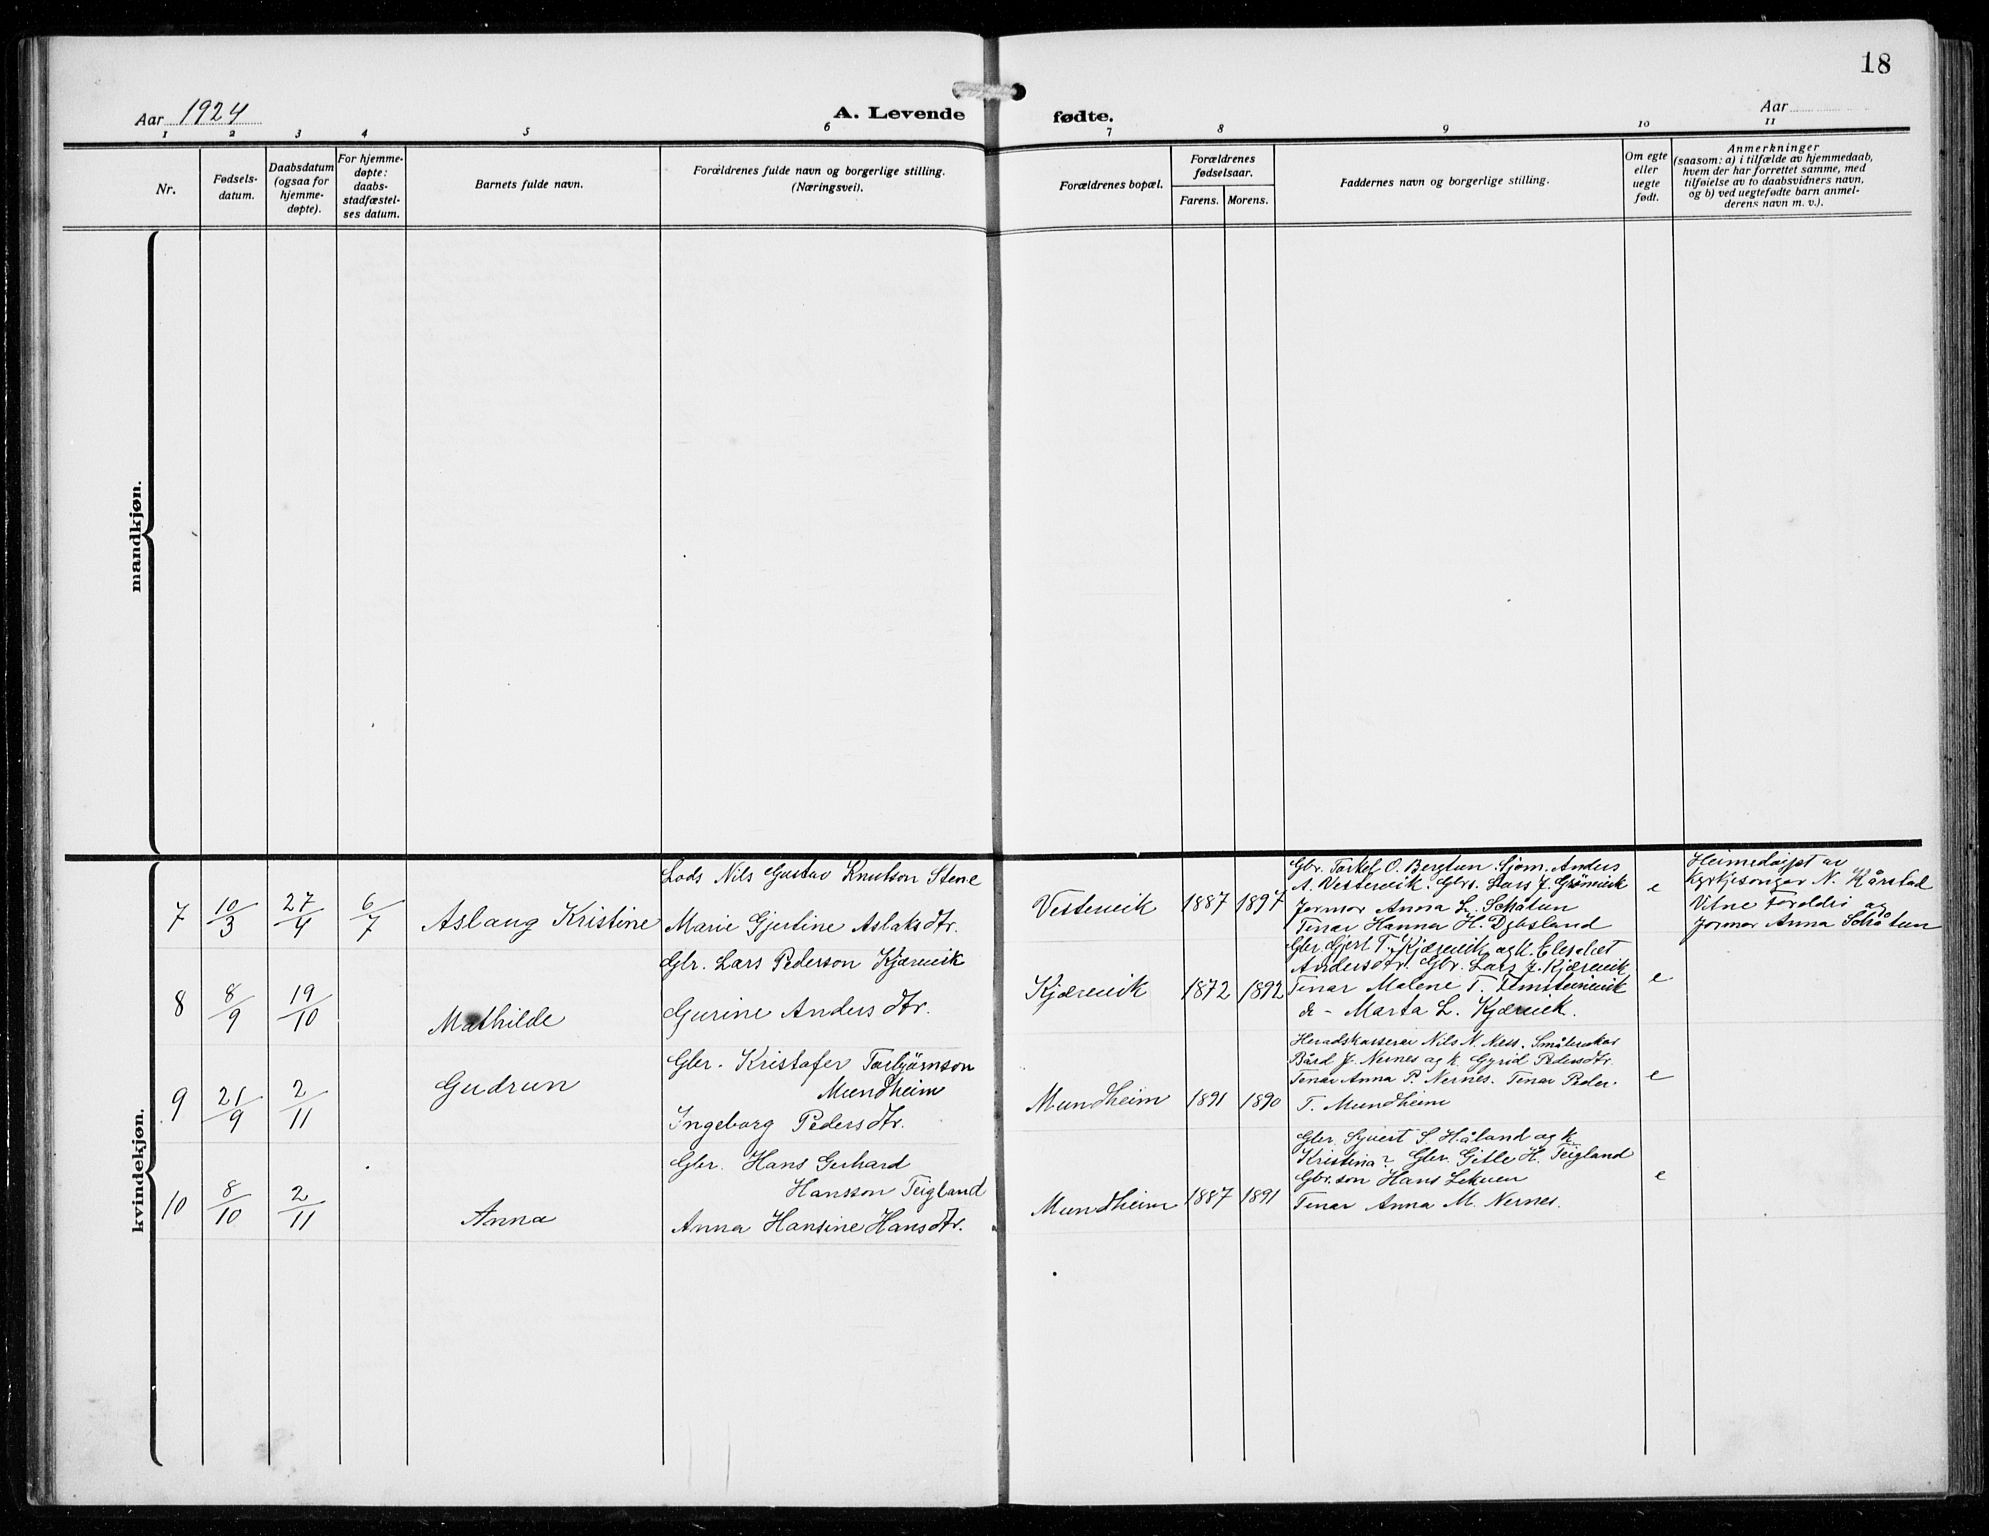 18
Aar 1924
A. Levende fødte.
Aar
1 2 3 4 5 6 7 8 9 10 11
Nr.
Fødsels-
datum.
Daabsdatum
(ogsaa for
hjemme-
døpte).
For hjemme-
døpte:
daabs-
stadfæstel-
ses datum.
Barnets fulde navn.
Forældrenes fulde navn og borgerlige stilling.
(Næringsvei).
Forældrenes bopæl.
Forældrenes
fødselsaar.
Farens. Morens.
Faddernes navn og borgerlige stilling.
Om egte
eller
uegte
født.
Anmerkninger
(saasom: a) i tilfælde av hjemmedaab,
hvem der har forrettet samme, med
tilføielse av to daabsvidners navn,
og b) ved uegtefødte barn anmel-
derens navn m. v.).
mandkjøn.
kvindekjøn.
7 10/3 27/4 6/7 Aslaug Kristine
Lods Nils Gustav Knutson Stene
Marie Gjertine Aslaksdtr.
Vestervik 1887 1897
Gbr. Torkel O. Bergtun. Sjøm. Anders
A. Vestervik. Gbr. Lars J. Grønvik
Jormor Anna L. Schåtun
Tenar Hanna H. Dybsland
e
Heimedøipt av
Kyrkjesongar N. Kårstad
Vitne foreldri og
Jormor Anna Schåtun
8 8/9 19/10 Mathilde
Gbr. Lars Pederson Kjærevik
Gurine Andersdtr.
Kjærevik 1872 1892
Gbr. Gjert T. Kjærevik og k. Elisabet
Andersdtr. Gbr. Lars J. Kjærevik
Tenar Malene T.
do - Marta L. Kjærevik.
e
9 21/9 2/11 Gudrun
Gbr. Kristofer Torbjørnson
Mundheim
Ingeborg Pedersdtr.
Mundheim 1891 1890
Heradskasserar Nils N. Ness. Småbrukar
Bård J. Nernes og k. Gyrid Pedersdtr.
Tenar Anna P. Nernes. Tenar Peder
T. Mundheim
e
10 8/10 2/11 Anna
Gbr. Hans Gerhard
Hansson Teigland
Anna Hansine Hansdtr.
Mundheim 1887 1891
Gbr. Syvert S. Håland og k.
Kristina? Gbr. Gitle H. Teigland
Gbr.son Hans Lekven
Tenar Anna M. Nernes.
e